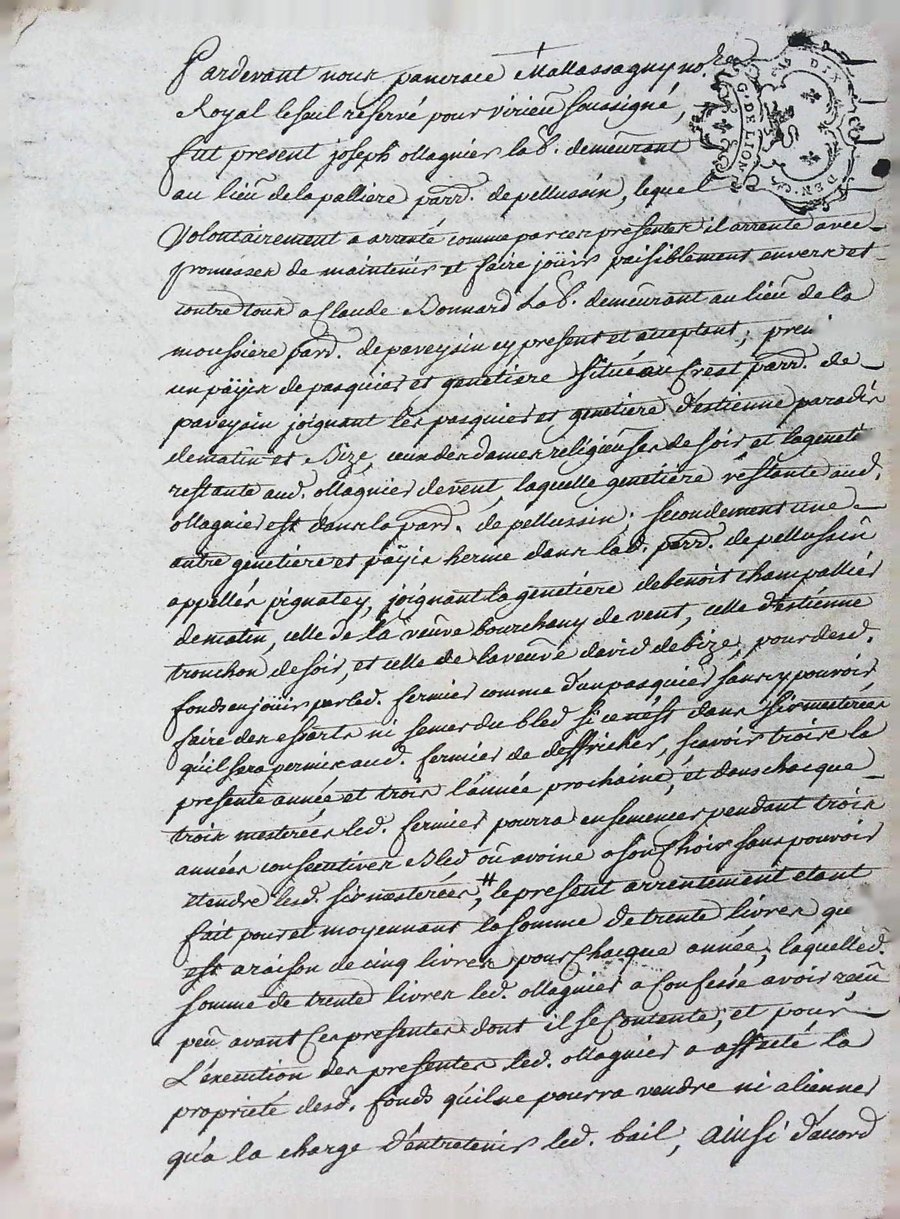 Pardevant nous pancrace Mallassagny no.re
Royal le seul reservé pour virieu soussigné,
fut present joseph ollagnier lab.r demeurant
au lieu de la palliere parr. de pellussin, lequel
Volontairement a arenté comme par ces presentes il arrente avec
promesses de maintenir et faire joüir paisiblement envers et
contre tous a Claude Bonnard lab.r demeurant au lieu de la
moussiere parr. de paveysin cy present et acceptant;
un päÿis de pasquier et genetiere situé au Crest parr. de
paveysin joignant les pasquier et genetiere d'estienne paradis
de matin et Bize, ceux des dames religieuses de soir et la genetie
restante aud. ollagnier de vent, laquelle genetiere restante aud.
ollagnier est dans la parr. de pellussin; secondement une
autre genetiere et päÿis herme dans lad. parr. de pellussin
appellés pignatey, joignant la genetiere de benoit Champallier
de matin, celle de la veuve bourchany de vent, celle d'estienne
tronchon de soir, et celle de la veuve david de bize, pour desd.
fonds en joüir par led. fermier comme d'un pasquier sans y pouvoir
faire des essarts ni semer du bled si ce n'est dans six mesterées
qu'il sera permis aud. fermier de deffricher, scavoir trois la
presente année et trois l'année prochaine, et dans chacque
trois mesterées led. fermier pourra ensemencer pendant trois
années consecutives Bled ou avoine a son Choix sans pouvoir
etendre lesd. six mesterées,# le present arrentement etant
fait pour et moyennant la somme de trente livres qui
est a raison de cinq livres pour Chacque année, laquelle d.
somme de trente livres led. ollagnier a Confessé avoir receu
peu avant Ces presentes dont il se Contente; et pour
L'execution des presentes led. ollagnier a affecté la
proprieté desd. fonds qu'il ne pourra vendre ni alienner
qu'a la charge d'entretenir led. bail, ainsi d'accord
G. DE LION
DIX
DEN.